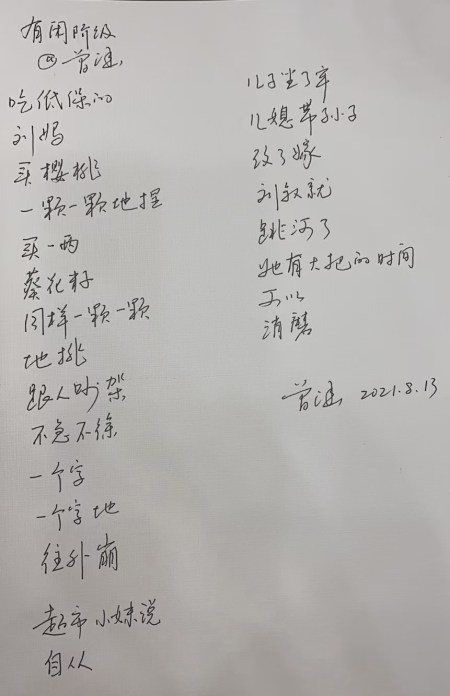 有闲阶级
曾涵
吃低保的
刘妈
买樱桃
一颗一颗地捏
买一两
葵花籽
同样一颗一颗
地挑
跟人吵架
不急不徐
一个字
一个字地
往外崩
超市小妹说
自从
儿子坐了牢
儿媳带孙子
改了嫁
刘叔就
跳河了
她有大把的时间
可以
消磨
曾涵 2021.8.13